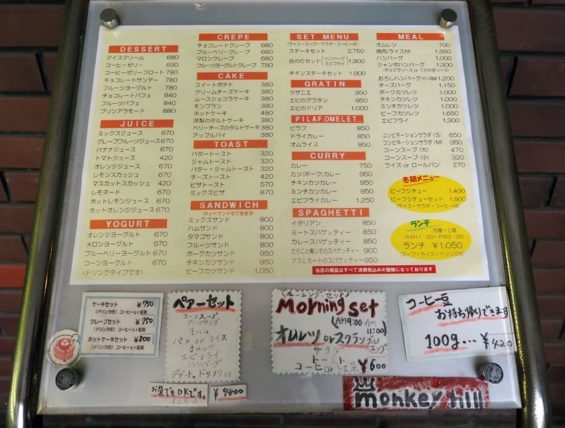 DESSERT
アイスクリーム 680
コーヒーゼリー 630
コーヒーゼリーフロート 780
チョコレートサンデー 780
フルーツヨーグルト 780
チョコレートパフェ 840
フルーツパフェ 840
プリンアラモード 880
JUICE
ミックスジュース 670
グレープフルーツジュース 670
バナナジュース 670
トマトジュース 420
オレンジジュース 670
レモンスカッシュ 670
マスカットスカッシュ 420
レモネード 670
ホットレモンジュース 670
ホットオレンジジュース 670
YOGURT
オレンジヨーグルト 670
メロンヨーグルト 670
ブルーベリーヨーグルト 670
コーヒーヨーグルト 670
<ドリンクタイプです>
CREPE
チョコレートクレープ 680
ブルーベリークレープ 680
マロンクレープ 680
フルーツヨーグルトクレープ 780
CAKE
スイートポテト 380
クリームチーズケーキ 380
レーズンショコラケーキ 380
モンブラン 380
ホットケーキ 380
洋梨のタルトケーキ 380
ベリーチーズのタルトケーキ 380
アップルパイ 380
TOAST
バタートースト 320
ジャムトースト 320
バター・ジャムトースト 320
チーズトースト 420
ピザトースト 570
ミックスピザ 870
SANDWICH
(ホットサンドもできます)
ミックスサンド 800
ハムサンド 800
タマゴサンド 800
フルーツサンド 800
ポークカツサンド 950
チキンカツサンド 950
ビーフカツサンド 1,050
SET MENU
(ライス・スープ・サラダ・コーヒー付)
ステーキセット 2,750
日のりセット 1,900
チキンステーキセット 1,900
GRATIN
マカロニ
エビのグラタン 950
エビのドリア 1,000
PILAF OMELET
ピラフ 850
ドライカレー 850
オムライス 850
CURRY
カレー 750
カツ(ポーク)カレー 950
チキンカツカレー 950
ミンチカツカレー 950
エビフライカレー 1,250
SPAGHETTI
イタリアン 850
ミートスパゲッティー 850
カレースパゲッティー 850
たらこと青じそのスパゲッティー 950
ナスとミートのスパゲッティー 950
MEAL
オムレツ 700
焼肉(ライス付) 1,350
ハンバーグ 1,000
ジャンボハンバーグ 1,350
おろしハンバーグ 1,200
チーズバーグ 1,150
ポークカツレツ 1,000
チキンカツレツ 1,000
ミンチカツレツ 1,000
ビーフカツレツ 1,650
エビフライ 1,300
コンビネーションサラダ (S) 650
コンビネーションサラダ (M) 750
コーンスープ (大) 470
コーンスープ (小) 320
ライス or ロールパン 270
冬期メニュー
ビーフシチュー 1,400
ビーフシチューセット 1,900
(ライス・サラダ・コーヒー付)
ランチ
月曜〜土曜
(AM11:00〜PM2:00)
ランチ ¥1,050
(スープ・ライス・ドリンク付)
当店の商品はすべて消費税込みの価格になっております
ケーキセット ¥750
(ドリンク付) コーヒーor紅茶
クレープセット ¥950
(ドリンク付) コーヒーor紅茶
ホットケーキセット ¥800
(ドリンク付) コーヒーor紅茶
ペアーセット
コーンスープ
サラダ
パン or ライス
オムレツ
エビフライ
ハンバーグ
デザート ドリンク 2つ
お昼でもOKです。 ¥4800
(モーニングセット)
Morning set
(AM9:00 AM 11:00)
オムレツ or スクランブル
サラダ スープ
トースト
コーヒー or 紅茶 ¥600
コーヒー豆
お持ち帰りできます
100g… ¥420
monkey hill